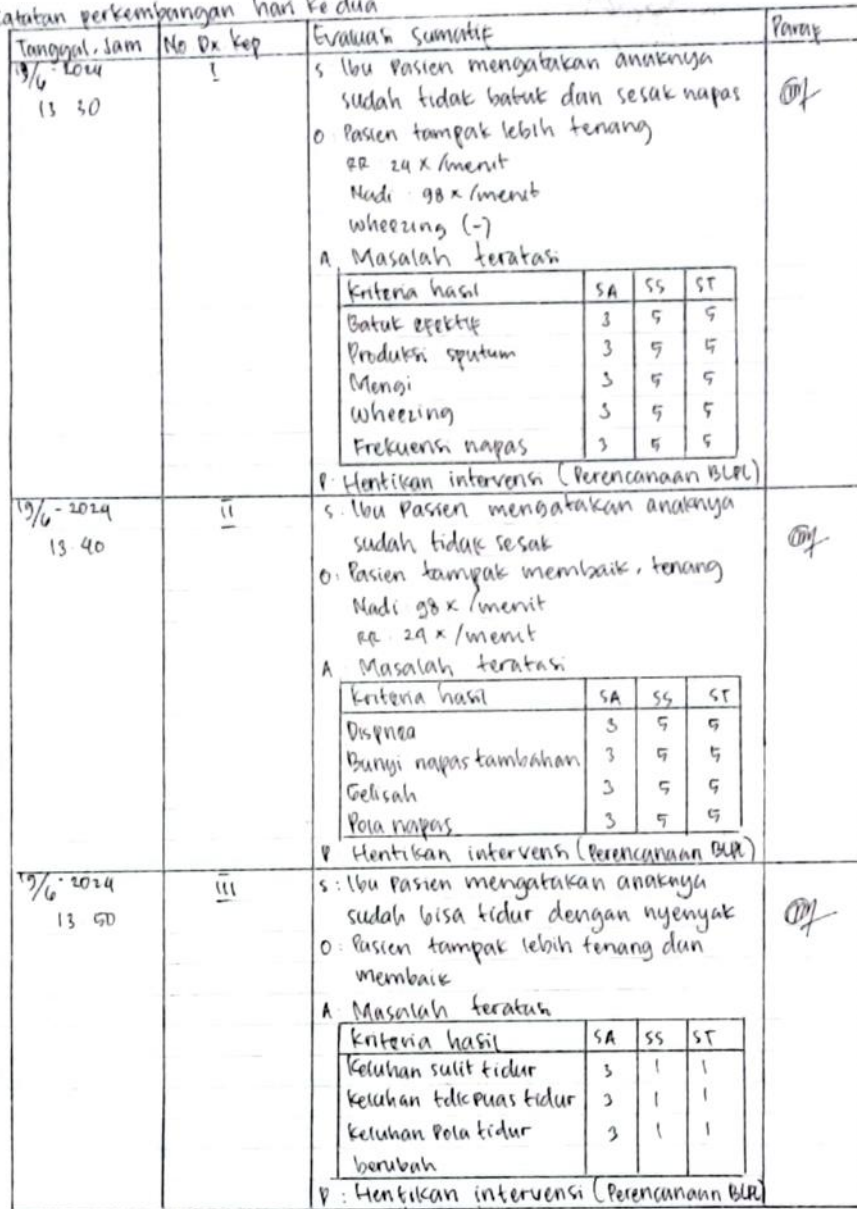 Catatan perkembangan hari ke dua
Tanggal, Jam No Dx Kep Evaluasi Sumatif Paraf
19/6 - 2024 I S Ibu Pasien mengatakan anaknya
13 30 sudah tidak batuk dan sesak napas
O Pasien tampak lebih tenang
RR 24 x /menit
Nadi 98 x /menit
wheezing (-)
A Masalah teratasi
Kriteria hasil SA SS ST
Batuk efektif 3 5 5
Produksi sputum 3 5 5
Mengi 3 5 5
Wheezing 3 5 5
Frekuensi napas 3 5 5
P. Hentikan intervensi (Perencanaan BLPL)
19/6 - 2024 II S. Ibu Pasien mengatakan anaknya
13 40 sudah tidak sesak
O: Pasien tampak membaik, tenang
Nadi 98 x /menit
RR 24 x /menit
A Masalah teratasi
Kriteria hasil SA SS ST
Dispnea 3 5 5
Bunyi napas tambahan 3 5 5
Gelisah 3 5 5
Pola napas 3 5 5
P Hentikan intervensi (Perencanaan BLPL)
19/6 - 2024 III S: Ibu Pasien mengatakan anaknya
13 50 sudah bisa tidur dengan nyenyak
O: Pasien tampak lebih tenang dan
membaik
A. Masalah teratasi
Kriteria hasil SA SS ST
Keluhan sulit tidur 3 1 1
Keluhan tdk puas tidur 3 1 1
Keluhan Pola tidur 3 1 1
berubah
P: Hentikan intervensi (Perencanaan BLPL)